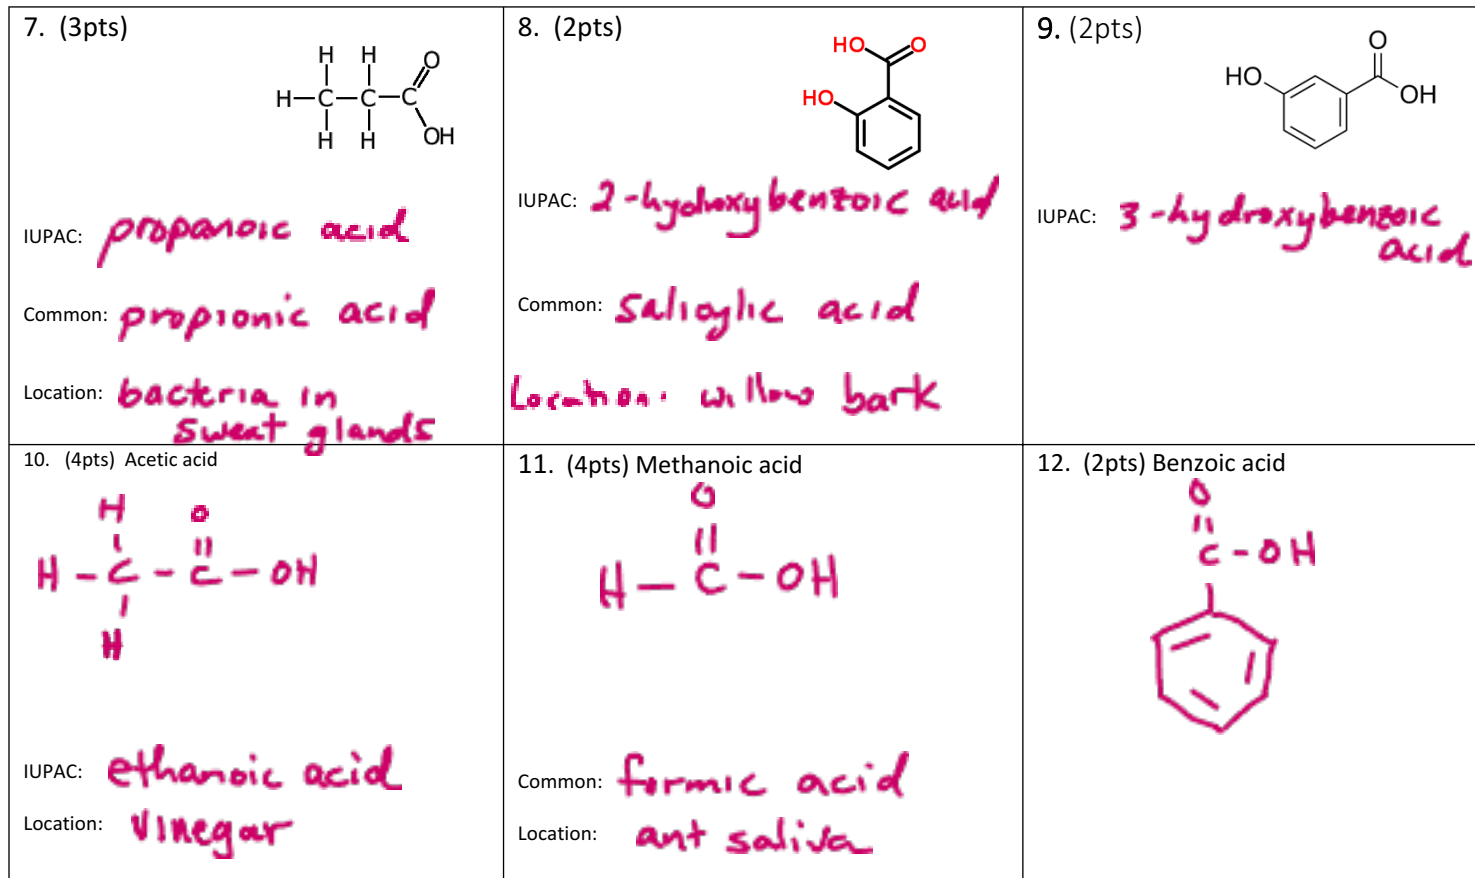 7. (3pts)
H H O
H C C C
H H OH
IUPAC: propanoic acid
Common: propionic acid
Location: bacteria in
sweat glands
8. (2pts)
HO O
HO
IUPAC: 2-hydroxybenzoic acid
Common: salicylic acid
Location: willow bark
9. (2pts)
O
HO
OH
IUPAC: 3-hydroxybenzoic
acid
10. (4pts) Acetic acid
H O
H - C - C - OH
H
IUPAC: ethanoic acid
Location: vinegar
11. (4pts) Methanoic acid
O
H - C - OH
Common: formic acid
Location: ant saliva
12. (2pts) Benzoic acid
O
C - OH